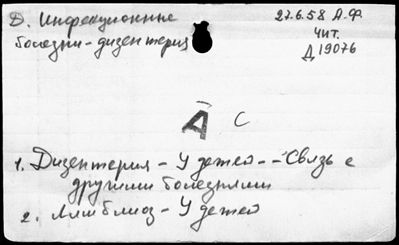 Д. Инфекционные
болезни - дизентерия
27.6.58 А.Ф.
Чит.
Д 19076
А С
1. Дизентерия - У детей -- Связь с
другими болезнями
2. Лямблиоз - У детей